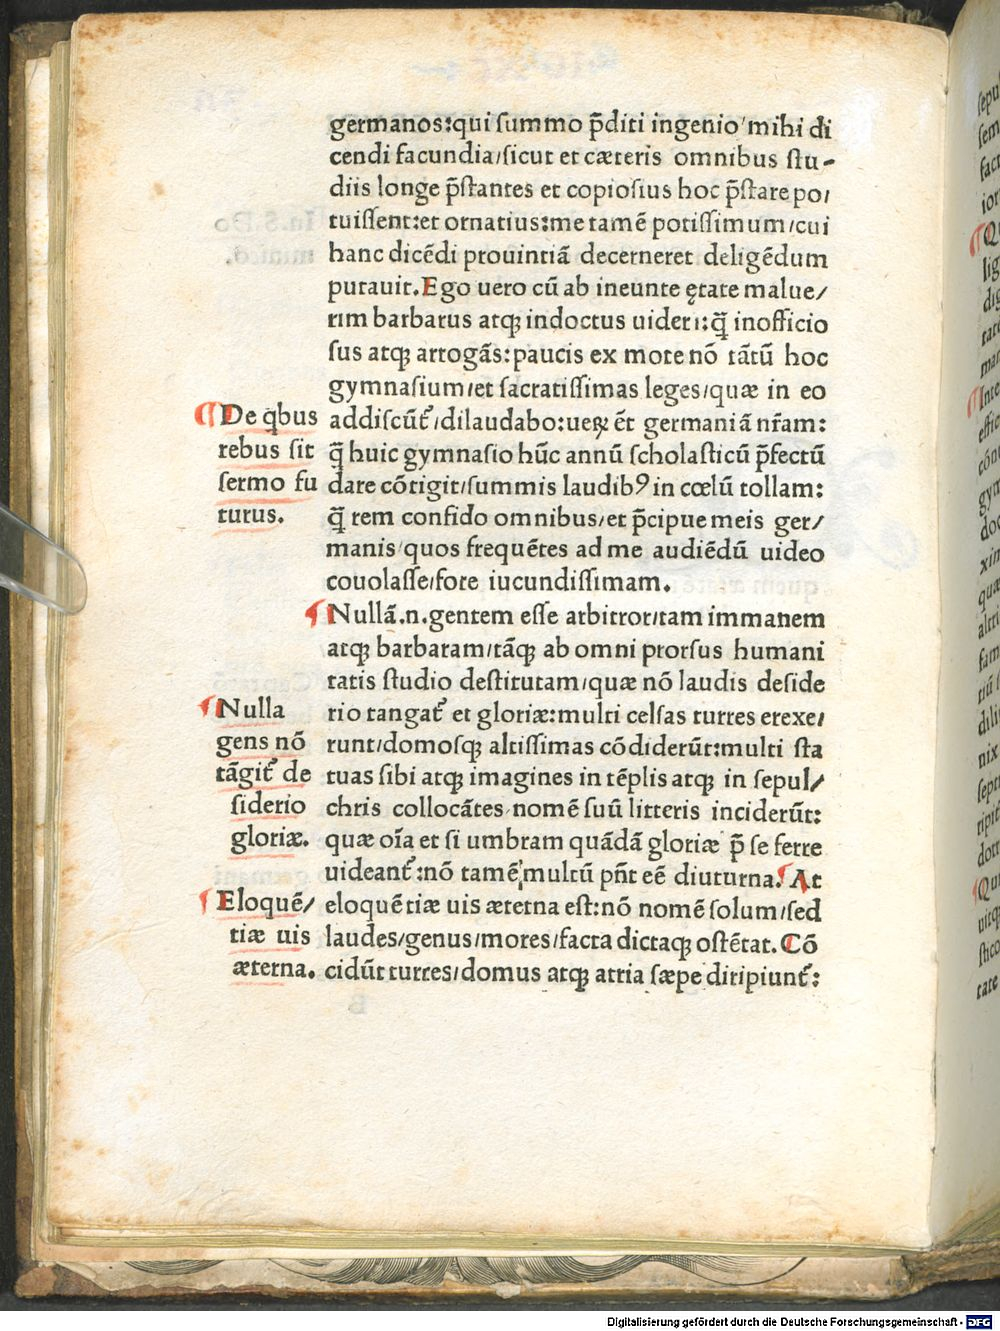 germanos:qui summo p̄diti ingenio/mihi di
cendi facundia/sicut et cæteris omnibus stu-
diis longe p̄stantes et copiosius hoc p̄stare po/
tuissent:et ornatius:me tamē potissimum/cui
hanc dicēdi prouintiā decerneret deligēdum
putauit.Ego uero cū ab ineunte ętate malue/
rim barbarus atqꝫ indoctus uideri:q̄ inofficio
sus atqꝫ arrogās:paucis ex more nō tātū hoc
gymnasium/et sacratissimas leges/quæ in eo
¶De qbus
rebus sit
sermo fu
turus.
addiscūt᷑/dilaudabo:ueꝝ ēt germaniā nr̄am:
q̄ huic gymnasio hūc annū scholasticū p̄fectū
dare cōtigit/summis laudibꝰ in cœlū tollam:
q̄ rem confido omnibus/et p̄cipue meis ger/
manis/quos frequētes ad me audiēdū uideo
couolasse/fore iucundissimam.
¶Nullā.n.gentem esse arbitror/tam immanem
atqꝫ barbaram/tāqꝫ ab omni prorsus humani
tatis studio destitutam/quæ nō laudis deside
¶Nulla
gens nō
tāgit᷑ de
siderio
gloriæ.
rio tangat᷑ et gloriæ:multi celsas turres erexe/
runt/domosqꝫ altissimas cōdiderūt:multi sta
tuas sibi atqꝫ imagines in tēplis atqꝫ in sepul/
chris collocātes/nomē suū litteris inciderūt:
quæ oīa et si umbram quādā gloriæ p̄ se ferre
uideant᷑:nō tamē/multū pn̄t eē diuturna.¶At
¶Eloquē/
tiæ uis
æterna.
eloquētiæ uis æterna est:nō nomē solum/sed
laudes/genus/mores/facta dictaqꝫ ostētat.Cō
cidūt turres/domus atqꝫ atria sæpe diripiunt᷑:
Digitalisierung gefördert durch die Deutsche Forschungsgemeinschaft - DFG